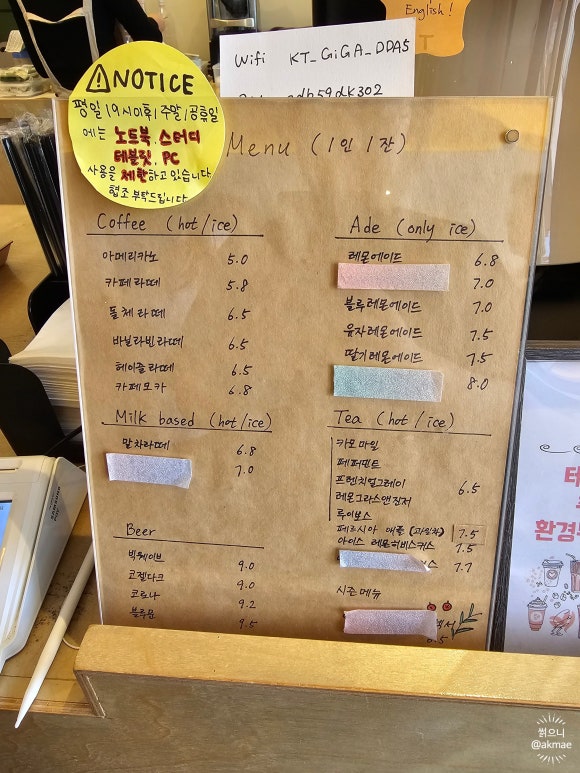 English!
Wifi KT_GiGA_DDA5
NOTICE
평일 19시이후/주말/공휴일
에는 노트북, 스터디
태블릿, PC
사용을 제한하고 있습니다
협조 부탁드립니다
Menu (1인 1잔)
Coffee (hot/ice)
아메리카노 5.0
카페라떼 5.8
돌체라떼 6.5
바닐라빈라떼 6.5
헤이즐라떼 6.5
카페모카 6.8
Milk based (hot/ice)
말차라떼 6.8
7.0
Beer
빅웨이브 9.0
코젤다크 9.0
코로나 9.2
블루문 9.5
Ade (only ice)
레몬에이드 6.8
7.0
블루레몬에이드 7.0
유자레몬에이드 7.5
딸기레몬에이드 7.5
8.0
Tea (hot/ice)
카모마일
페퍼민트
프렌치얼그레이 6.5
레몬그라스앤진저
루이보스
페르시아 애플 (과일차) 7.5
아이스 레몬히비스커스 7.5
커스 7.7
시즌메뉴
6.5
환경
SAMSUNG
썱으니
@akmae